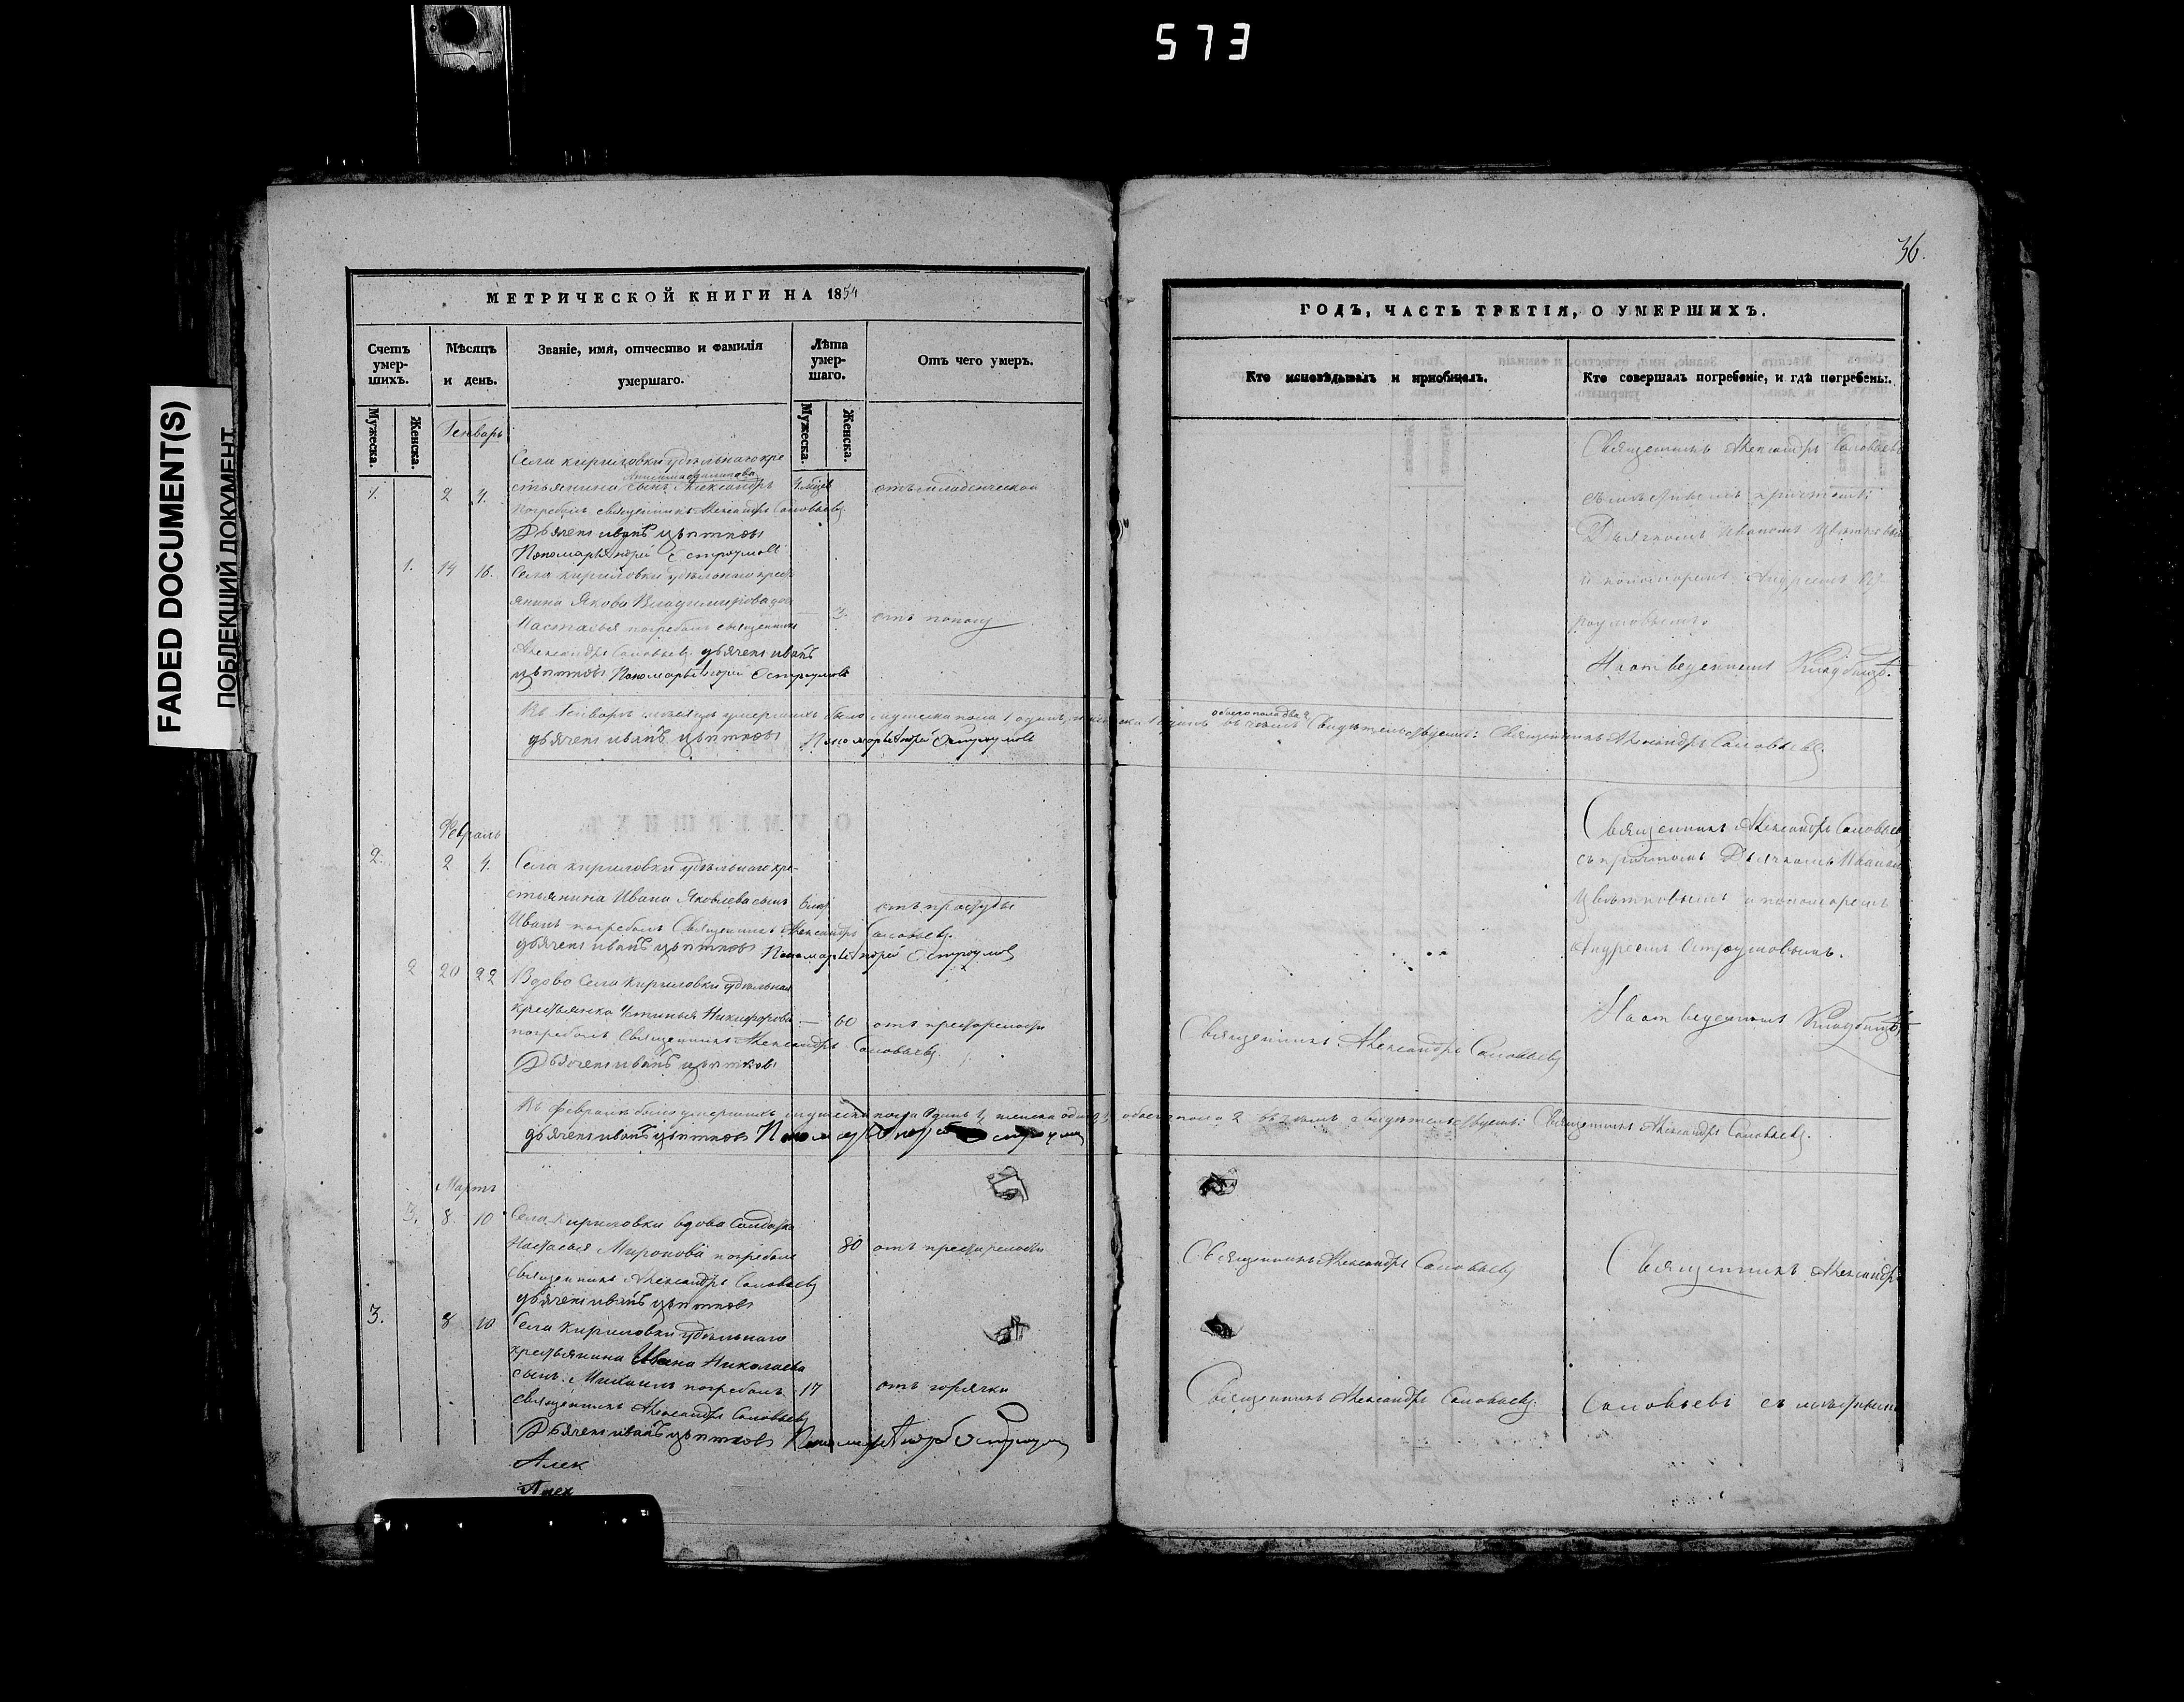 573
FADED DOCUMENT(S)
ПОБЛЕКШИЙ ДОКУМЕНТ
36.
МЕТРИЧЕСКОЙ КНИГИ НА 1854
Счетъ умерших.
Мѣсяцъ и день.
Званіе, имя, отчество и фамилія умершаго.
Лѣта умершаго.
Отъ чего умеръ.
Мужеска.
Женска.
Мужеска.
Женска.
Генварь
Села Кириловки удѣльнаго кре
1. 2 4. стьянина сынъ Александръ отъ младенческой
погребалъ священникъ Александръ Соловьевъ.
Дьячекъ Иванъ Цвѣтковъ
Пономарь Андрей Остроумовъ
1. 14 16. Села Кириловки удѣльнаго крест
янина Якова Владимирова дочь
Настасья погребалъ священникъ 3. отъ поносу
Александръ Соловьевъ. Дьячекъ Иванъ
Цвѣтковъ Пономарь Андрей Остроумовъ
Въ Генварѣ мѣсяцѣ умершихъ было мужеска пола 1 одинъ, женска 1 одна обоего пола два 2 въ чемъ свидѣтельствуемъ: Священникъ Александръ Соловьевъ.
Дьячекъ Иванъ Цвѣтковъ Пономарь Андрей Остроумовъ
Февраль
2. 2 4. Села Кириловки удѣльнаго кре-
стьянина Ивана Яковлева сынъ отъ простуды
Иванъ погребалъ Священникъ Александръ Соловьевъ.
Дьячекъ Иванъ Цвѣтковъ Пономарь Андрей Остроумовъ
2 20 22 Вдова Села Кириловки удѣльная
крестьянка Устинья Никифорова — 60 отъ престарелости
погребалъ Священникъ Александръ Соловьевъ.
Дьячекъ Иванъ Цвѣтковъ
Въ Февралѣ было умершихъ мужеска пола одинъ 1, женска одна 1, обоего пола 2 въ чемъ свидѣтельствуемъ: Священникъ Александръ Соловьевъ.
Дьячекъ Иванъ Цвѣтковъ Пономарь Андрей Остроумовъ
Мартъ
3. 8. 10 Села Кириловки вдова Солдатка
Настасья Миронова погребалъ 80 отъ престарелости
священникъ Александръ Соловьевъ
Дьячекъ Иванъ Цвѣтковъ
3. 8 10 Села Кириловки удѣльнаго
крестьянина Ивана Николаева
сынъ Михаилъ погребалъ 17 отъ горячки
священникъ Александръ Соловьевъ
Дьячекъ Иванъ Цвѣтковъ Пономарь Андрей Остроумовъ
Алек
Алек
ГОДЪ, ЧАСТЬ ТРЕТІЯ, О УМЕРШИХЪ.
Кто исповѣдывалъ и пріобщалъ.
Кто совершалъ погребеніе, и гдѣ погребены.
Священникъ Александръ Соловьевъ
съ мѣстнымъ причтомъ:
Дьячкомъ Иваномъ Цвѣтковымъ
и пономаремъ Андреемъ Ост
роумовымъ.
На отведенномъ Кладбищѣ.
Священникъ Александръ Соловьевъ
съ причтомъ Дьячкомъ Иваномъ
Цвѣтковымъ и пономаремъ
Андреемъ Остроумовымъ.
На отведенномъ Кладбищѣ
Священникъ Александръ Соловьевъ
Священникъ Александръ Соловьевъ
Священникъ Александръ
Священникъ Александръ Соловьевъ.
Соловьевъ съ мѣстнымъ